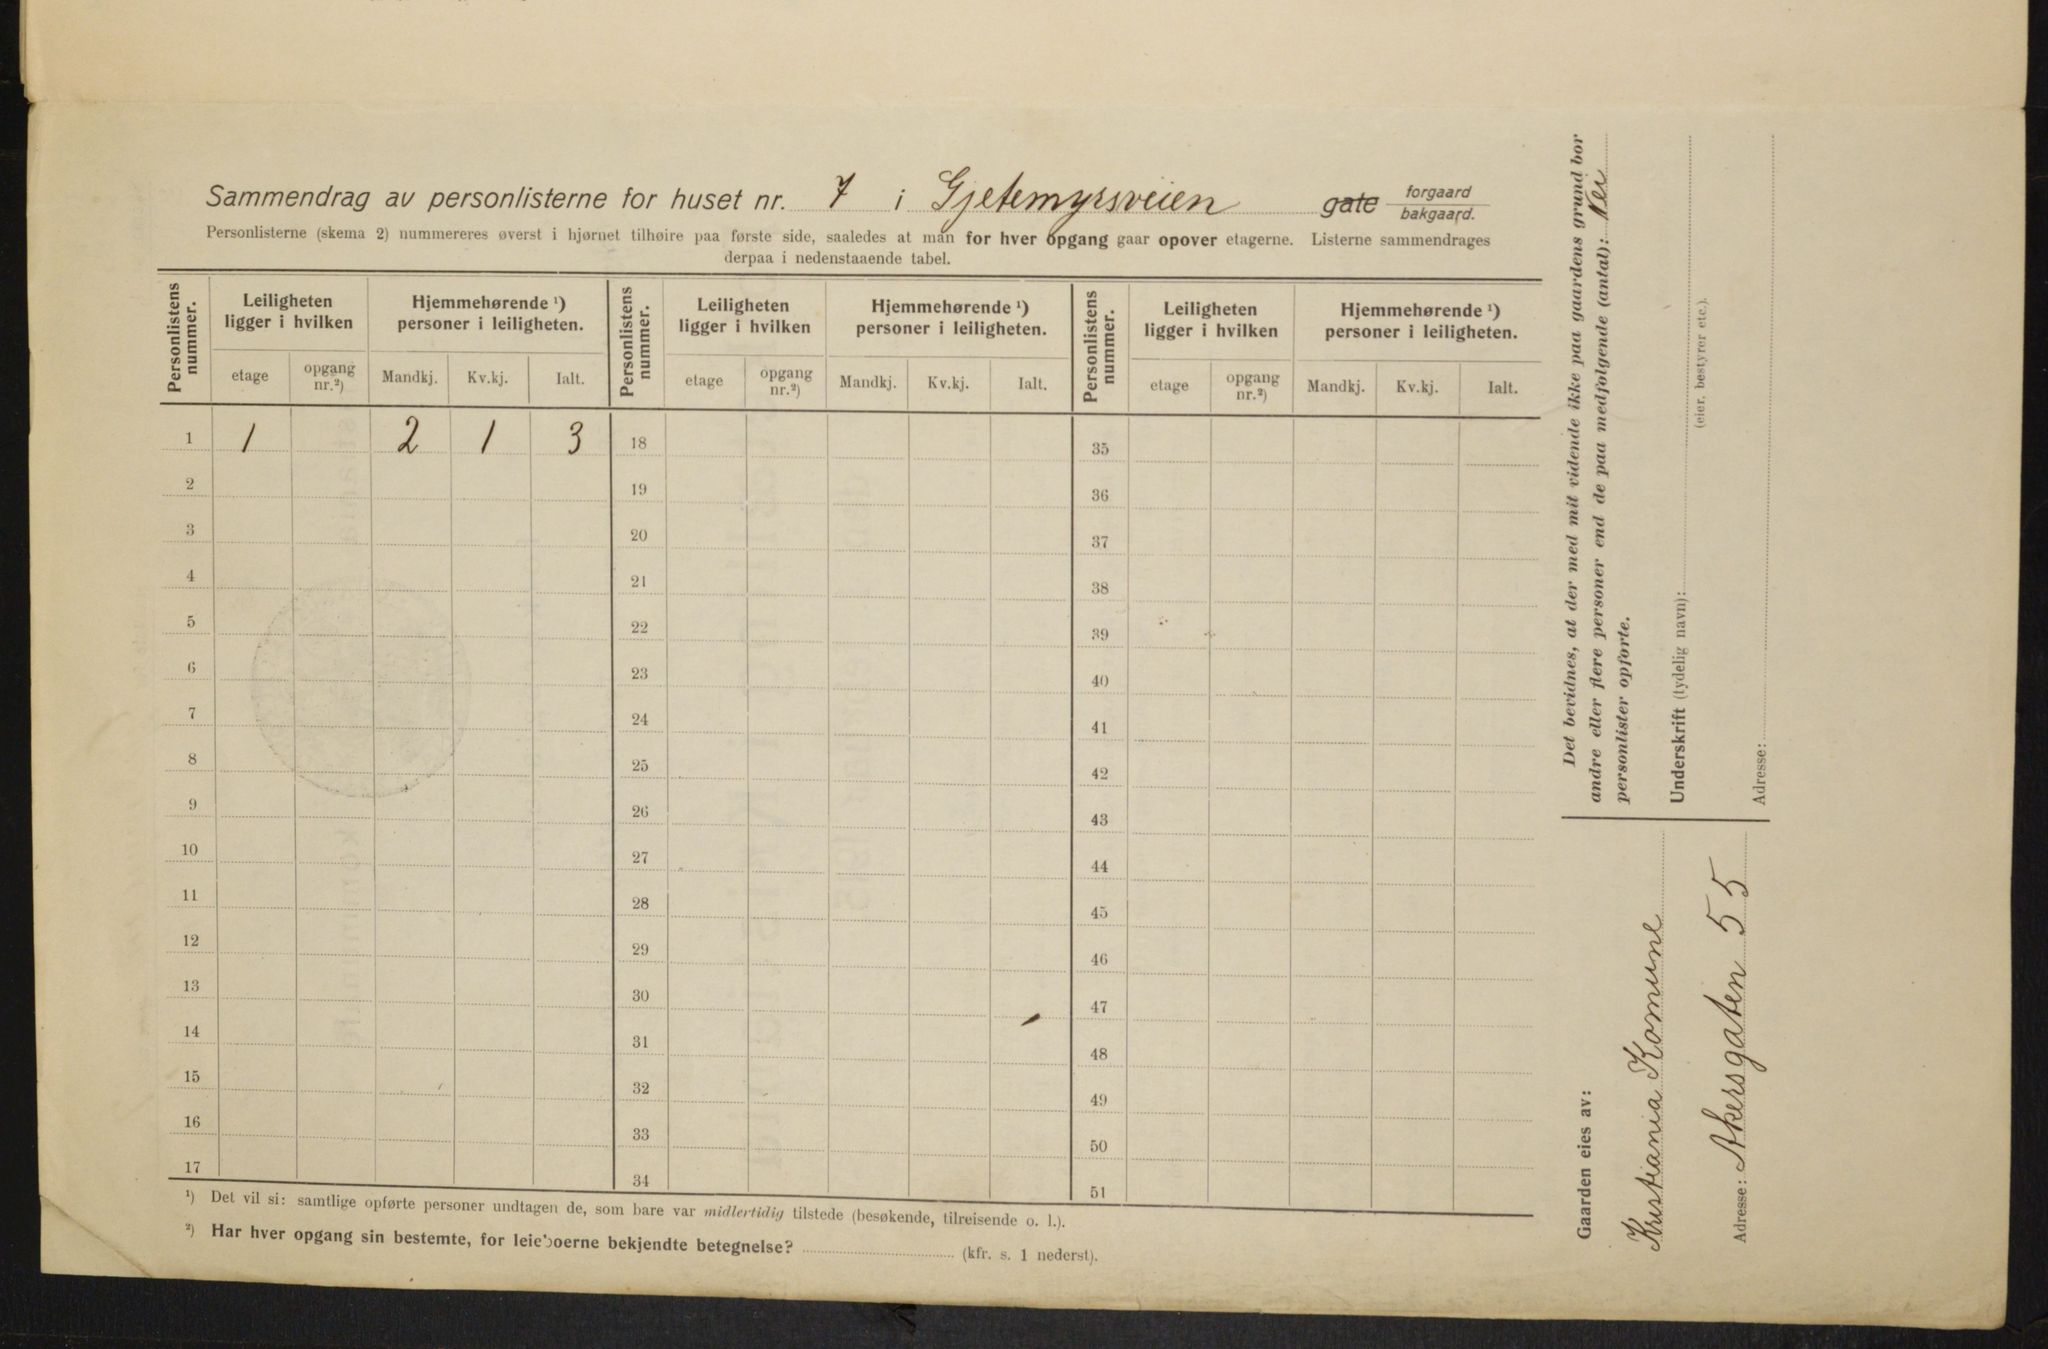 Sammendrag av personlisterne for huset nr. 7 i Gjetemyrsveien gate forgaard bakgaard.
Personlisterne (skema 2) nummereres øverst i hjørnet tilhøire paa første side, saaledes at man for hver opgang gaar opover etagerne. Listerne sammendrages
derpaa i nedenstaaende tabel.
Personlistens nummer. Leiligheten ligger i hvilken Hjemmehørende ¹) personer i leiligheten. Personlistens nummer. Leiligheten ligger i hvilken Hjemmehørende ¹) personer i leiligheten. Personlistens nummer. Leiligheten ligger i hvilken Hjemmehørende ¹) personer i leiligheten.
etage opgang nr.²) Mandkj. Kv.kj. Ialt. etage opgang nr.²) Mandkj. Kv.kj. Ialt. etage opgang nr.²) Mandkj. Kv.kj. Ialt.
1 1 2 1 3 18 35
2 19 36
3 20 37
4 21 38
5 22 39
6 23 40
7 24 41
8 25 42
9 26 43
10 27 44
11 28 45
12 29 46
13 30 47
14 31 48
15 32 49
16 33 50
17 34 51
¹) Det vil si: samtlige opførte personer undtagen de, som bare var midlertidig tilstede (besøkende, tilreisende o. l.).
²) Har hver opgang sin bestemte, for leieboerne bekjendte betegnelse? (kfr. s. 1 nederst).
Det bevidnes, at der med mit vidende ikke paa gaardens grund bor
andre eller flere personer end de paa medfølgende (antal): Nei
personlister opførte.
Underskrift (tydelig navn):
(eier, bestyrer etc.).
Adresse:
Gaarden eies av:
Kristiania Komune
Adresse: Akersgaten 55